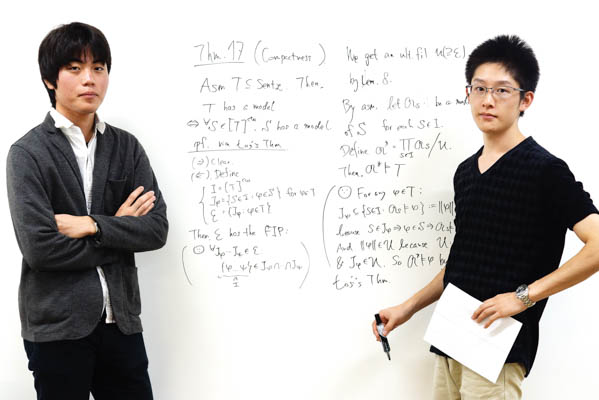 Thm. 17 (Compactness)
Asm T ⊆ Sentz. Then,
T has a model
⇔ ∀S ∈ [T]^<ω, S has a model
pf. via Łoś's Thm.
(⇒) Clear.
(⇐). Define
I = [T]^<ω
J_φ = {S ∈ I : φ ∈ S} for φ ∈ T
ξ = {J_φ : φ ∈ T}
Then ξ has the FIP:
∵ ∀J_φ … J_ψ ∈ ξ.
{φ … ψ} ∈ J_φ ∩ … ∩ J_ψ
I
We get an ult. fil U(⊇ ξ),
by Lem. 8.
By asm. let 𝔄s : be a
of S for each S ∈ I.
Define 𝔄* = ∏ 𝔄s / U.
S∈I
Then, 𝔄* ⊨ T
∵ For any φ ∈ T :
J_φ ⊆ {S ∈ I : 𝔄s ⊨ φ} := ‖φ‖
because S ∈ J_φ ⇒ φ ∈ S ⇒ 𝔄s
And ‖φ‖ ∈ U because U :
& J_φ ∈ U. So 𝔄* ⊨ φ by
Łoś's Thm.